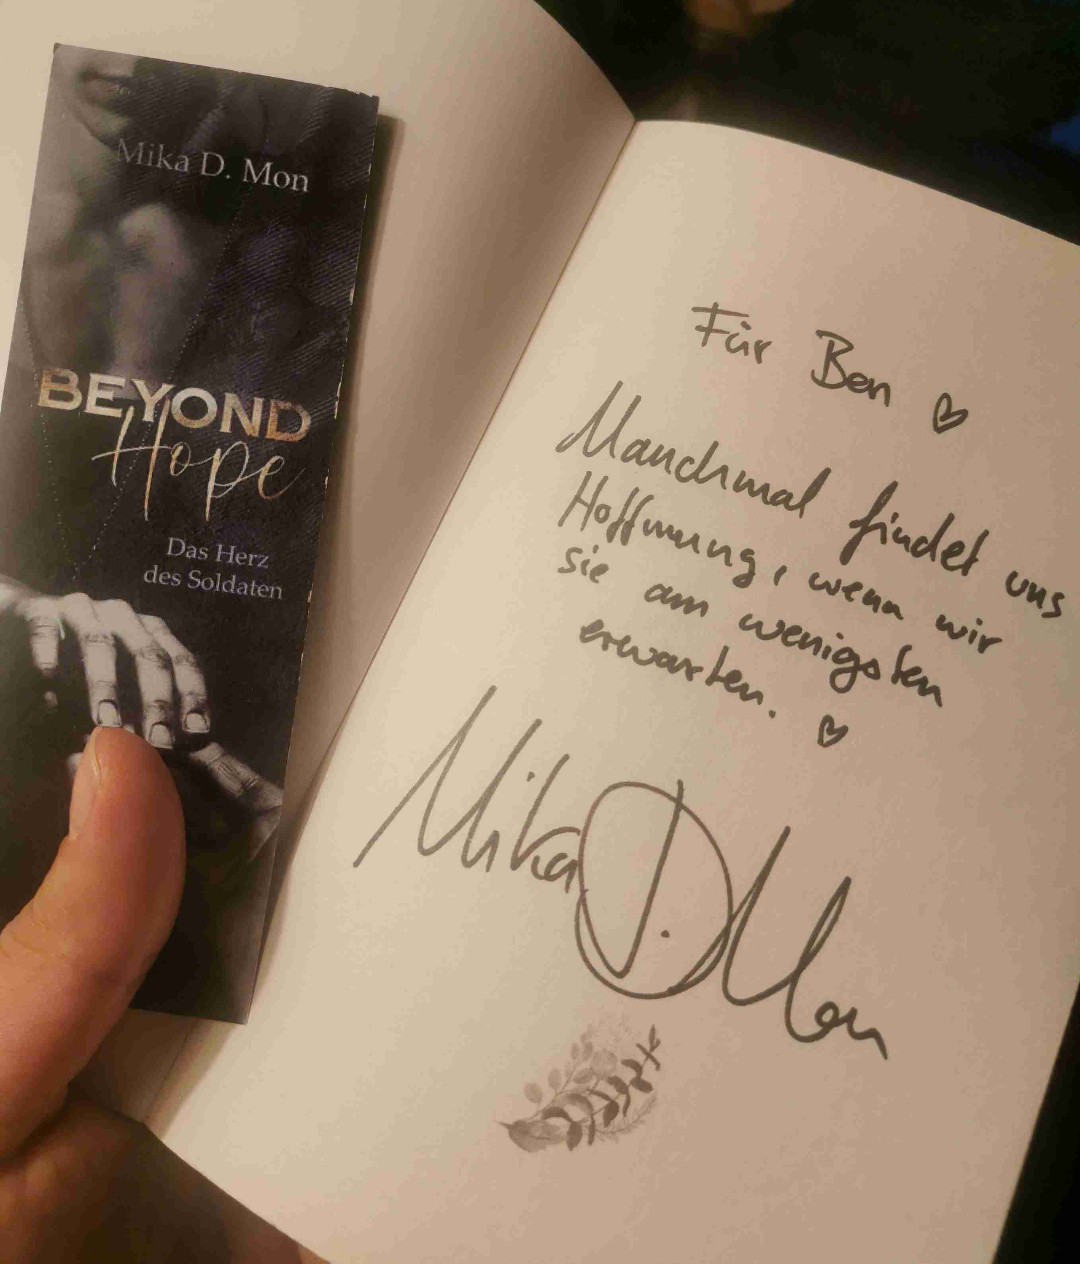 Mika D. Mon
BEYOND
Hope
Das Herz
des Soldaten
Für Ben ♡
Manchmal findet uns
Hoffnung, wenn wir
sie am wenigsten
erwarten. ♡
Mika D. Mon